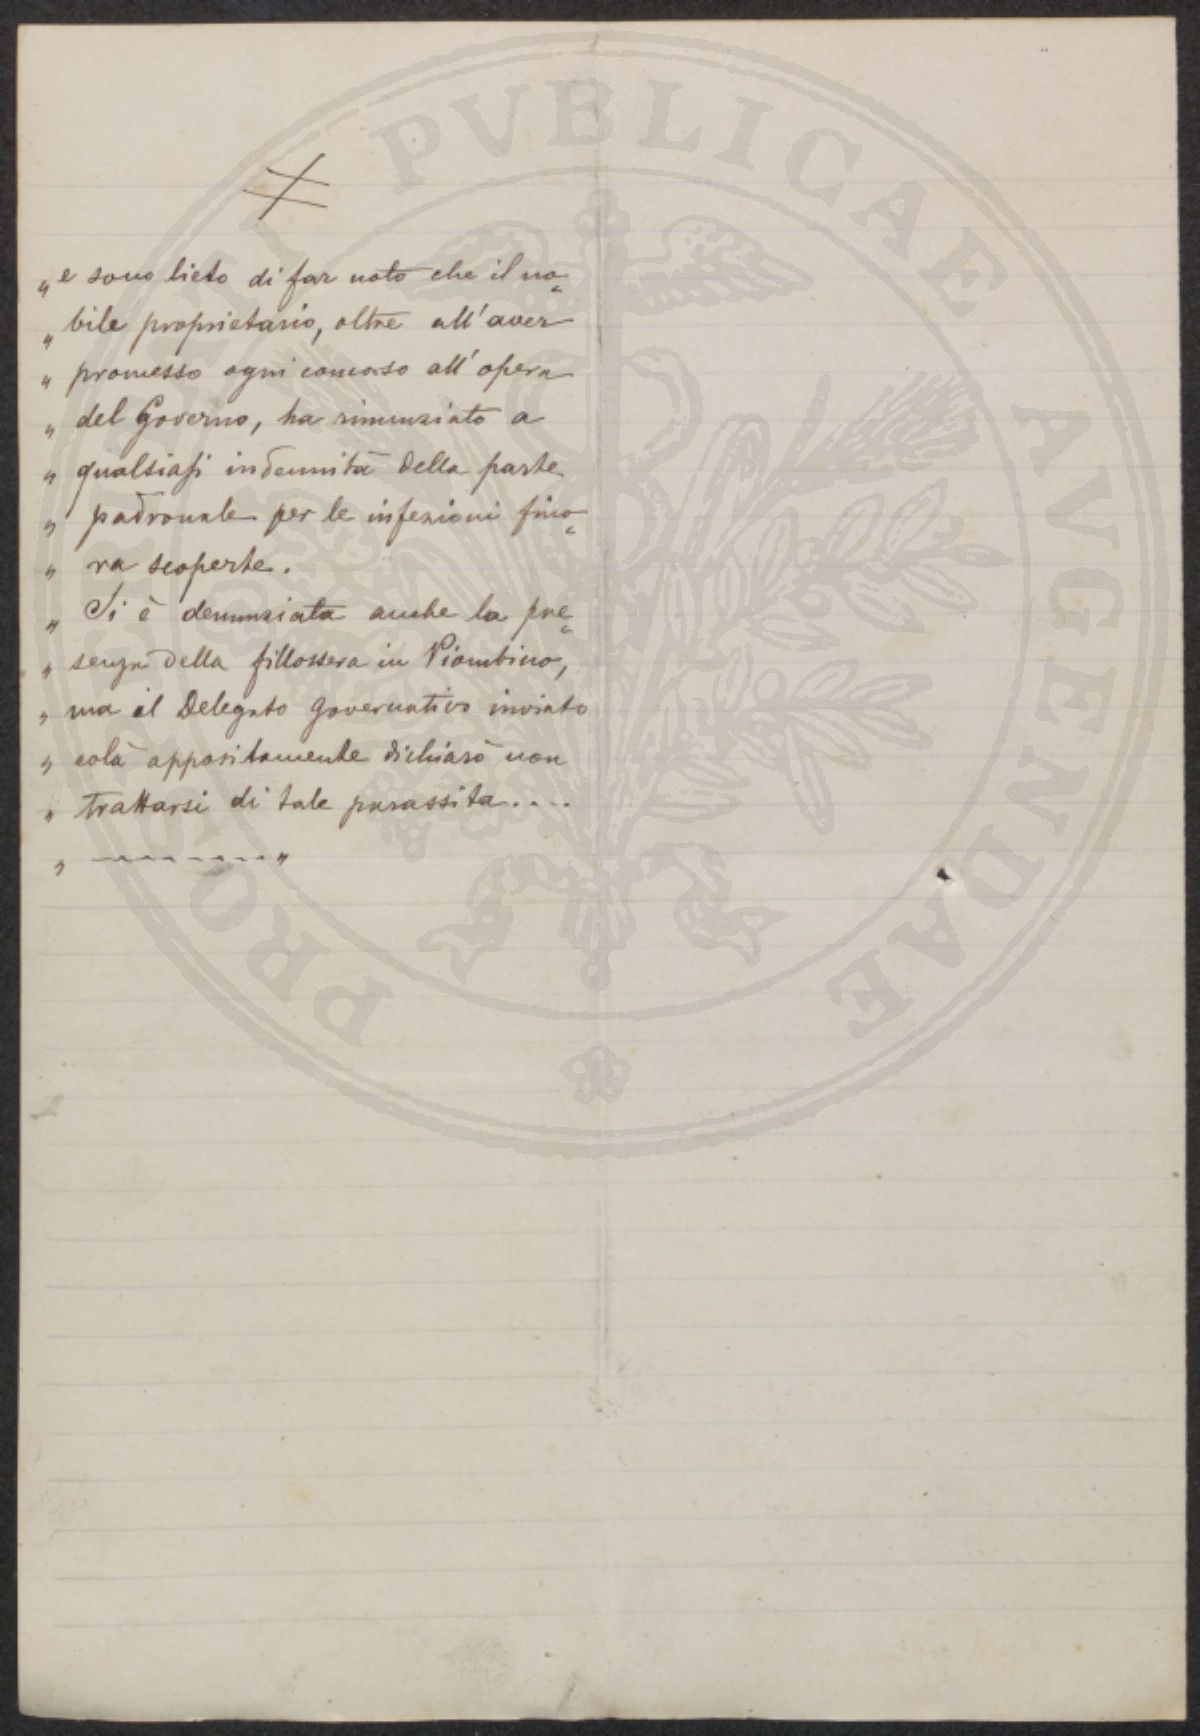 PROSPERITATI PVBLICAE AVGENDAE
„ e sono lieto di far noto che il no=
„ bile proprietario, oltre all'aver
„ promesso ogni concorso all'opera
„ del Governo, ha rinunziato a
„ qualsiasi indennità della parte
„ padronale per le infezioni fino=
„ ra scoperte.
„ Si è denunziata anche la pre=
„ senza della fillossera in Piombino,
„ ma il Delegato governativo inviato
„ colà appositamente dichiarò non
„ trattarsi di tale parassita....
„ --------- "